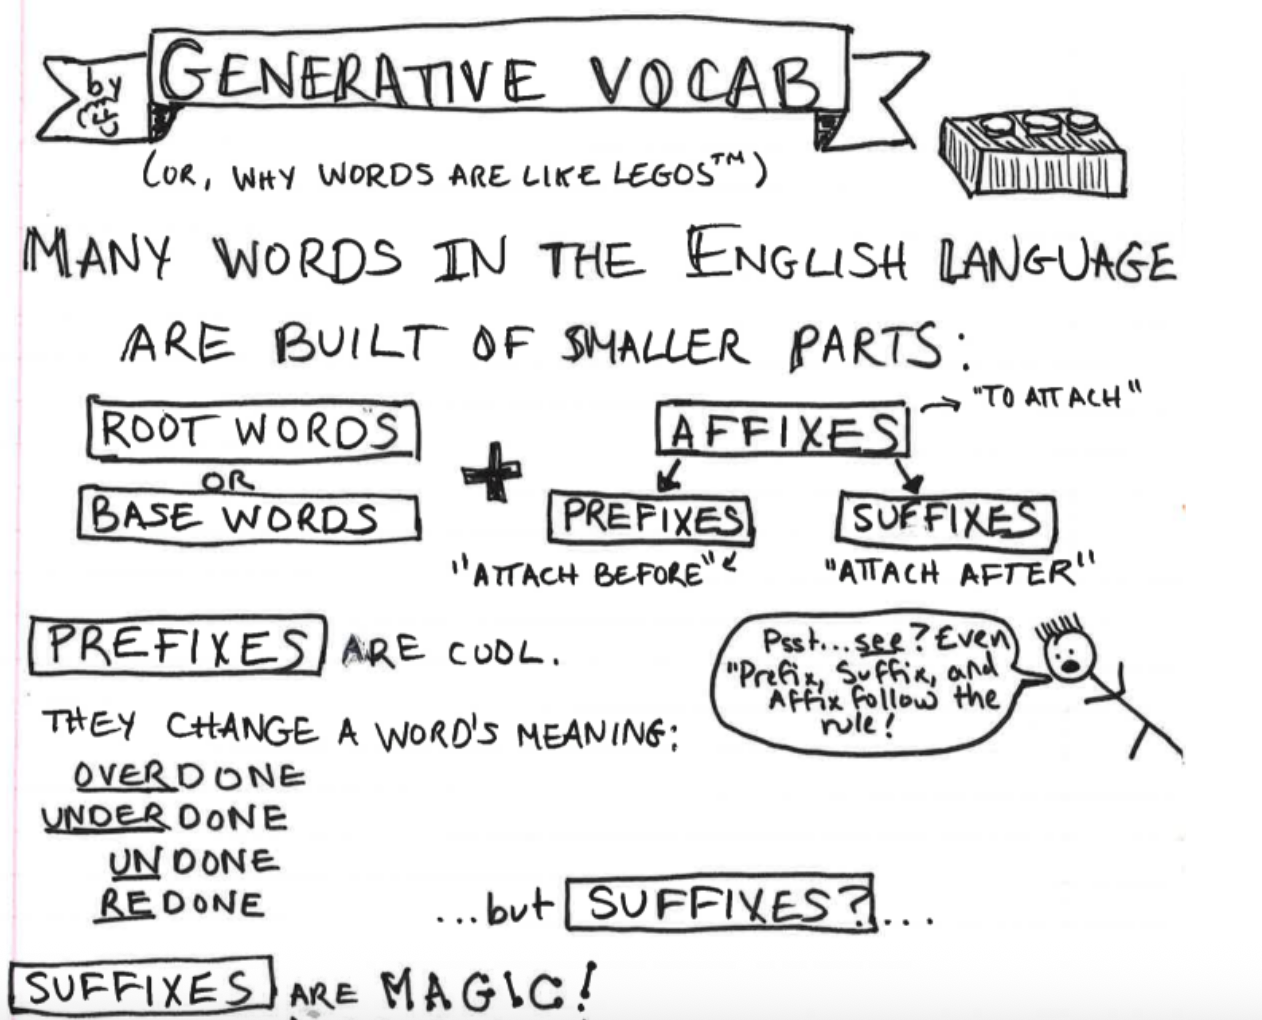 by
GENERATIVE VOCAB
(OR, WHY WORDS ARE LIKE LEGOS™)
MANY WORDS IN THE ENGLISH LANGUAGE
ARE BUILT OF SMALLER PARTS:
ROOT WORDS
OR
BASE WORDS
+
AFFIXES → "TO ATTACH"
PREFIXES
"ATTACH BEFORE"
SUFFIXES
"ATTACH AFTER"
PREFIXES ARE COOL.
Psst...see? Even
"Prefix, Suffix, and
Affix follow the
rule!
THEY CHANGE A WORD'S MEANING:
OVERDONE
UNDERDONE
UNDONE
REDONE
...but SUFFIXES?...
SUFFIXES ARE MAGIC!